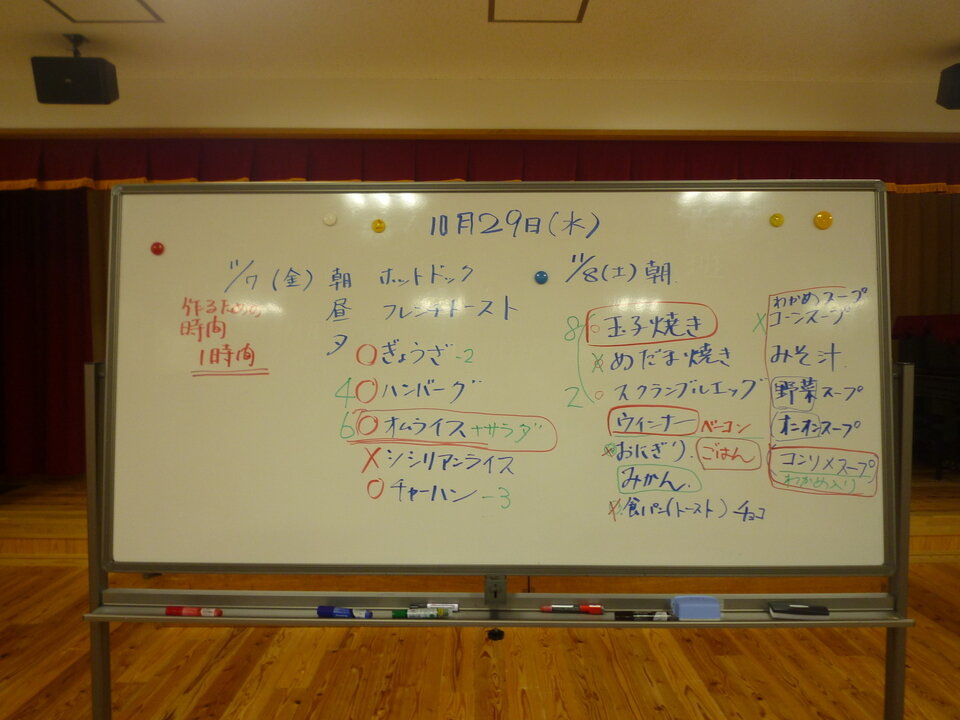 10月29日(水)
11/7(金) 朝 ホットドック
昼 フレンチトースト
夕 ○ぎょうざ-2
4○ハンバーグ
6○オムライス+サラダ
×シシリアンライス
○チャーハン-3
作るための
時間
1時間
11/8(土)朝
8○玉子焼き
×めだま焼き
2○スクランブルエッグ
ウィンナー ベーコン
×おにぎり.ごはん
みかん.
×食パン(トースト)-チョコ
わかめスープ
×コーンスープ
みそ汁.
野菜スープ
オニオンスープ
コンソメスープ
わかめ入り